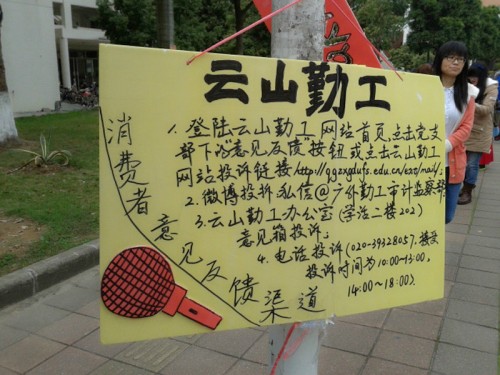 云山勤工
1.登陆云山勤工网站首页,点击党支
部下沿意见反馈按钮或点击云山勤工
网站投诉链接http://qgzxgdufs.edu.cn/ext/mail/;
2.微博投拆私信@广外勤工审计监察部
3.云山勤工办公室(学活二楼202)
意见箱投诉。
4.电话投诉(020-39328057),接受
投诉时间为10:00-13:00,
14:00-18:00。
消费者意见反馈渠道